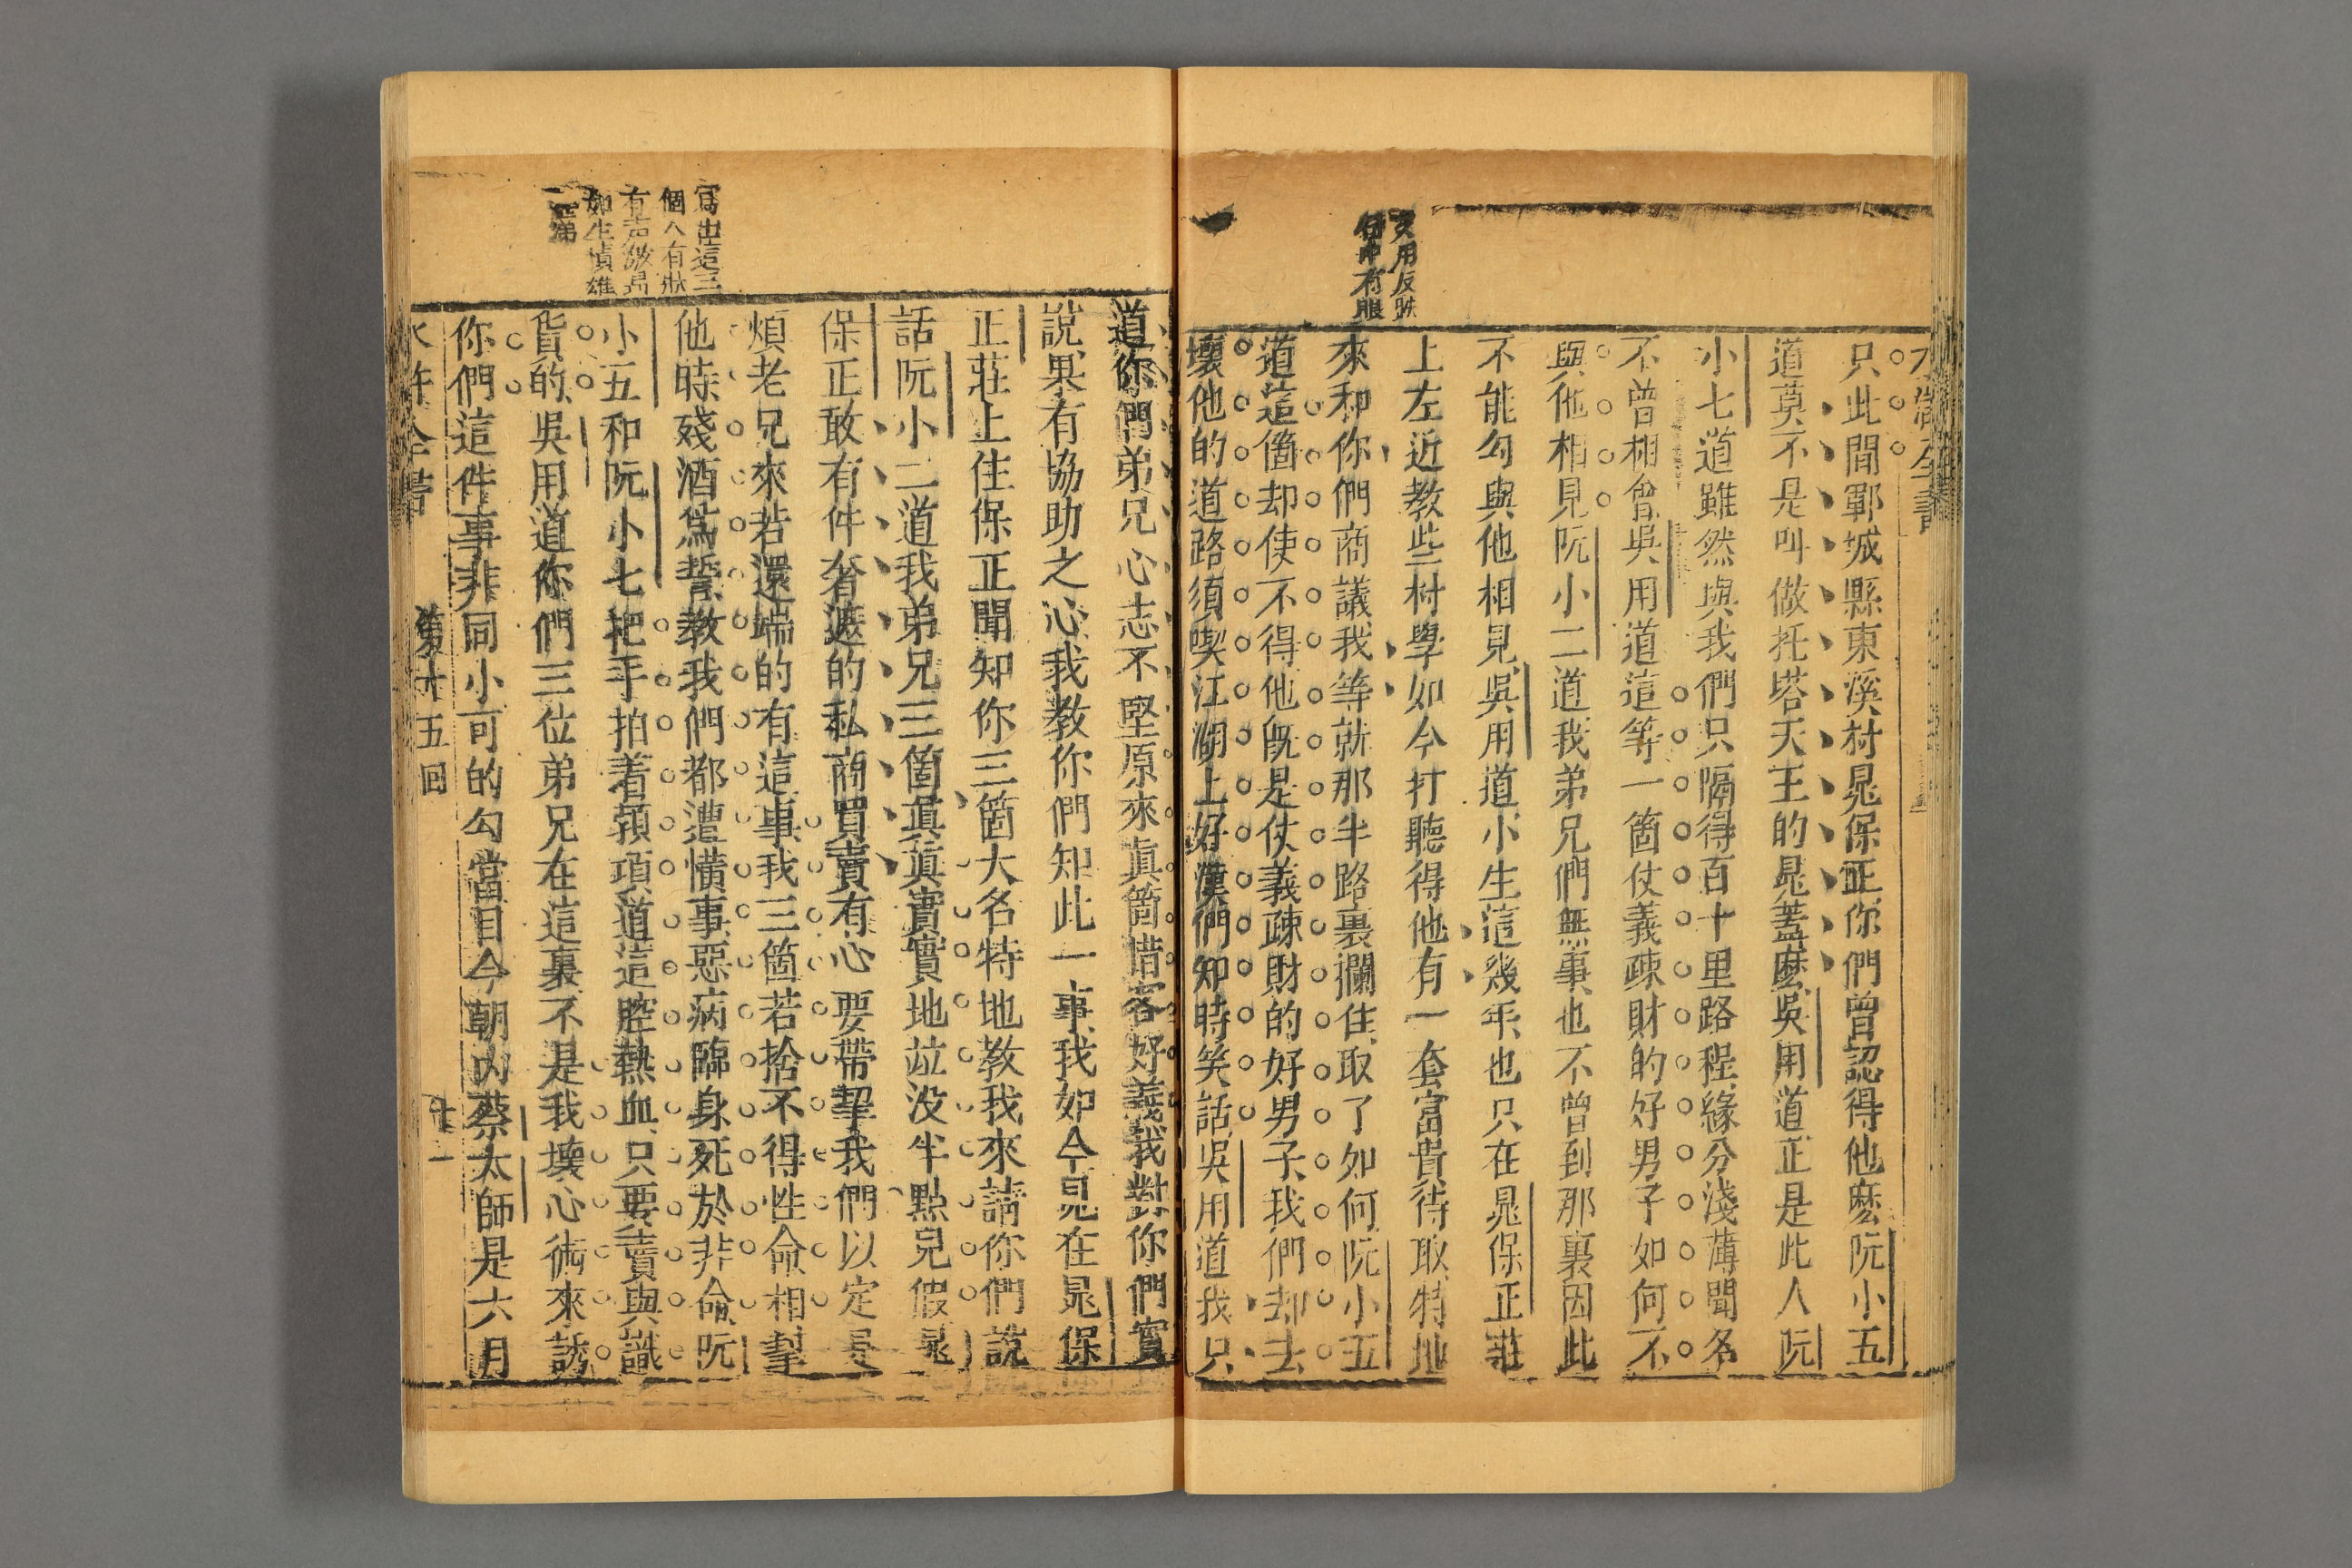 水滸全書
又用反跌
句中有眼
只此間鄆城縣東溪村晁保正你們曾認得他麽阮小五
道莫不是叫做托塔天王的晁蓋麽吳用道正是此人阮
小七道雖然與我們只隔得百十里路程緣分淺薄聞名
不曾相會吳用道這等一箇仗義疎財的好男子如何不
與他相見阮小二道我弟兄們無事也不曾到那裏因此
不能勾與他相見吳用道小生這幾年也只在晁保正莊
上左近教些村學如今打聽得他有一套富貴待取特地
來和你們商議我等就那半路裏攔住取了如何阮小五
道這箇却使不得他既是仗義疎財的好男子我們却去
壞他的道路須喫江湖上好漢們知時笑話吳用道我只
道你們弟兄心志不堅原來眞箇惜客好義我對你們實
說果有協助之心我教你們知此一事我如今見在晁保
正莊上住保正聞知你三箇大名特地教我來請你們說
話阮小二道我弟兄三箇眞眞實實地竝没半點兒假晁
保正敢有件奢遮的私商買賣有心要帶挈我們以定是
煩老兄來若還端的有這事我三箇若捨不得性命相幫
他時殘酒爲誓教我們都遭橫事惡病臨身死於非命阮
小五和阮小七把手拍着頸項道這腔熱血只要賣與識
貨的吳用道你們三位弟兄在這裏不是我壞心術來誘
你們這件事非同小可的勾當目今朝內蔡太師是六月
寫出這三
個人有狀
有聲
如生
水滸全書
第十五回
十二